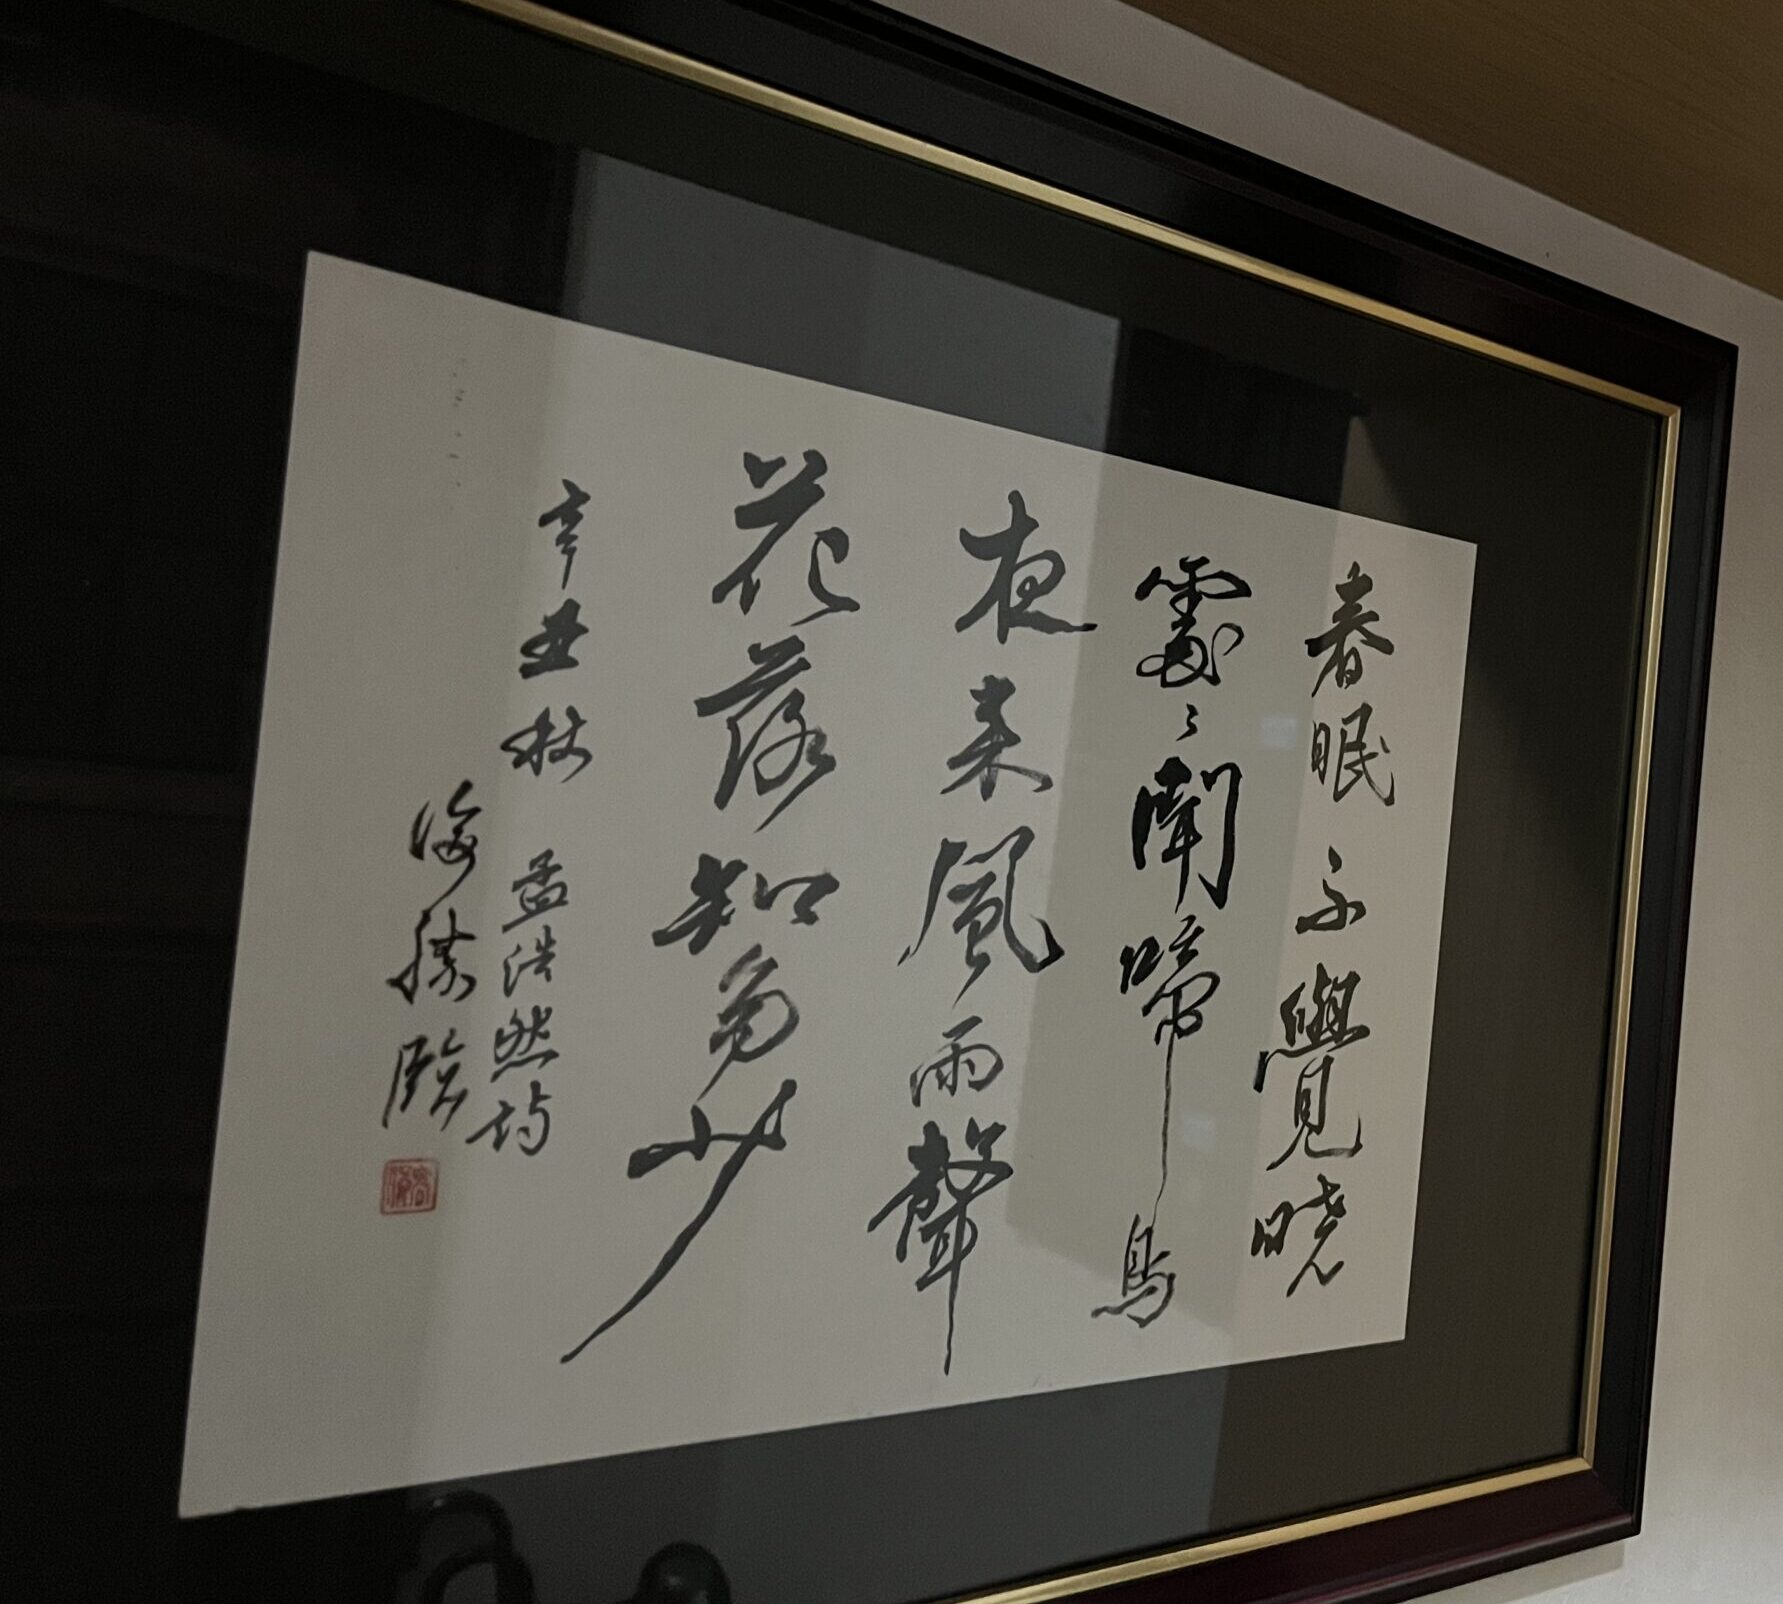 春眠不覺曉
處々聞啼鳥
夜来風雨聲
花落知多少
辛丑秋 孟浩然詩
海濤臨